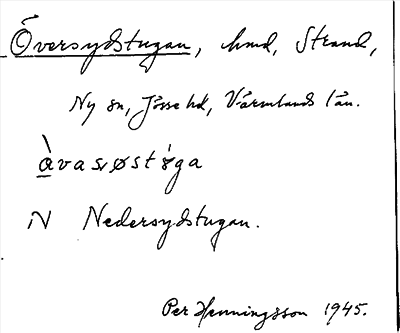 Översydstugan, hmd, Strand,
Ny sn, Jösse hd, Värmlands län.
àvasøstȯ́ga
N Nedersydstugan.
Per Henningsson 1945.